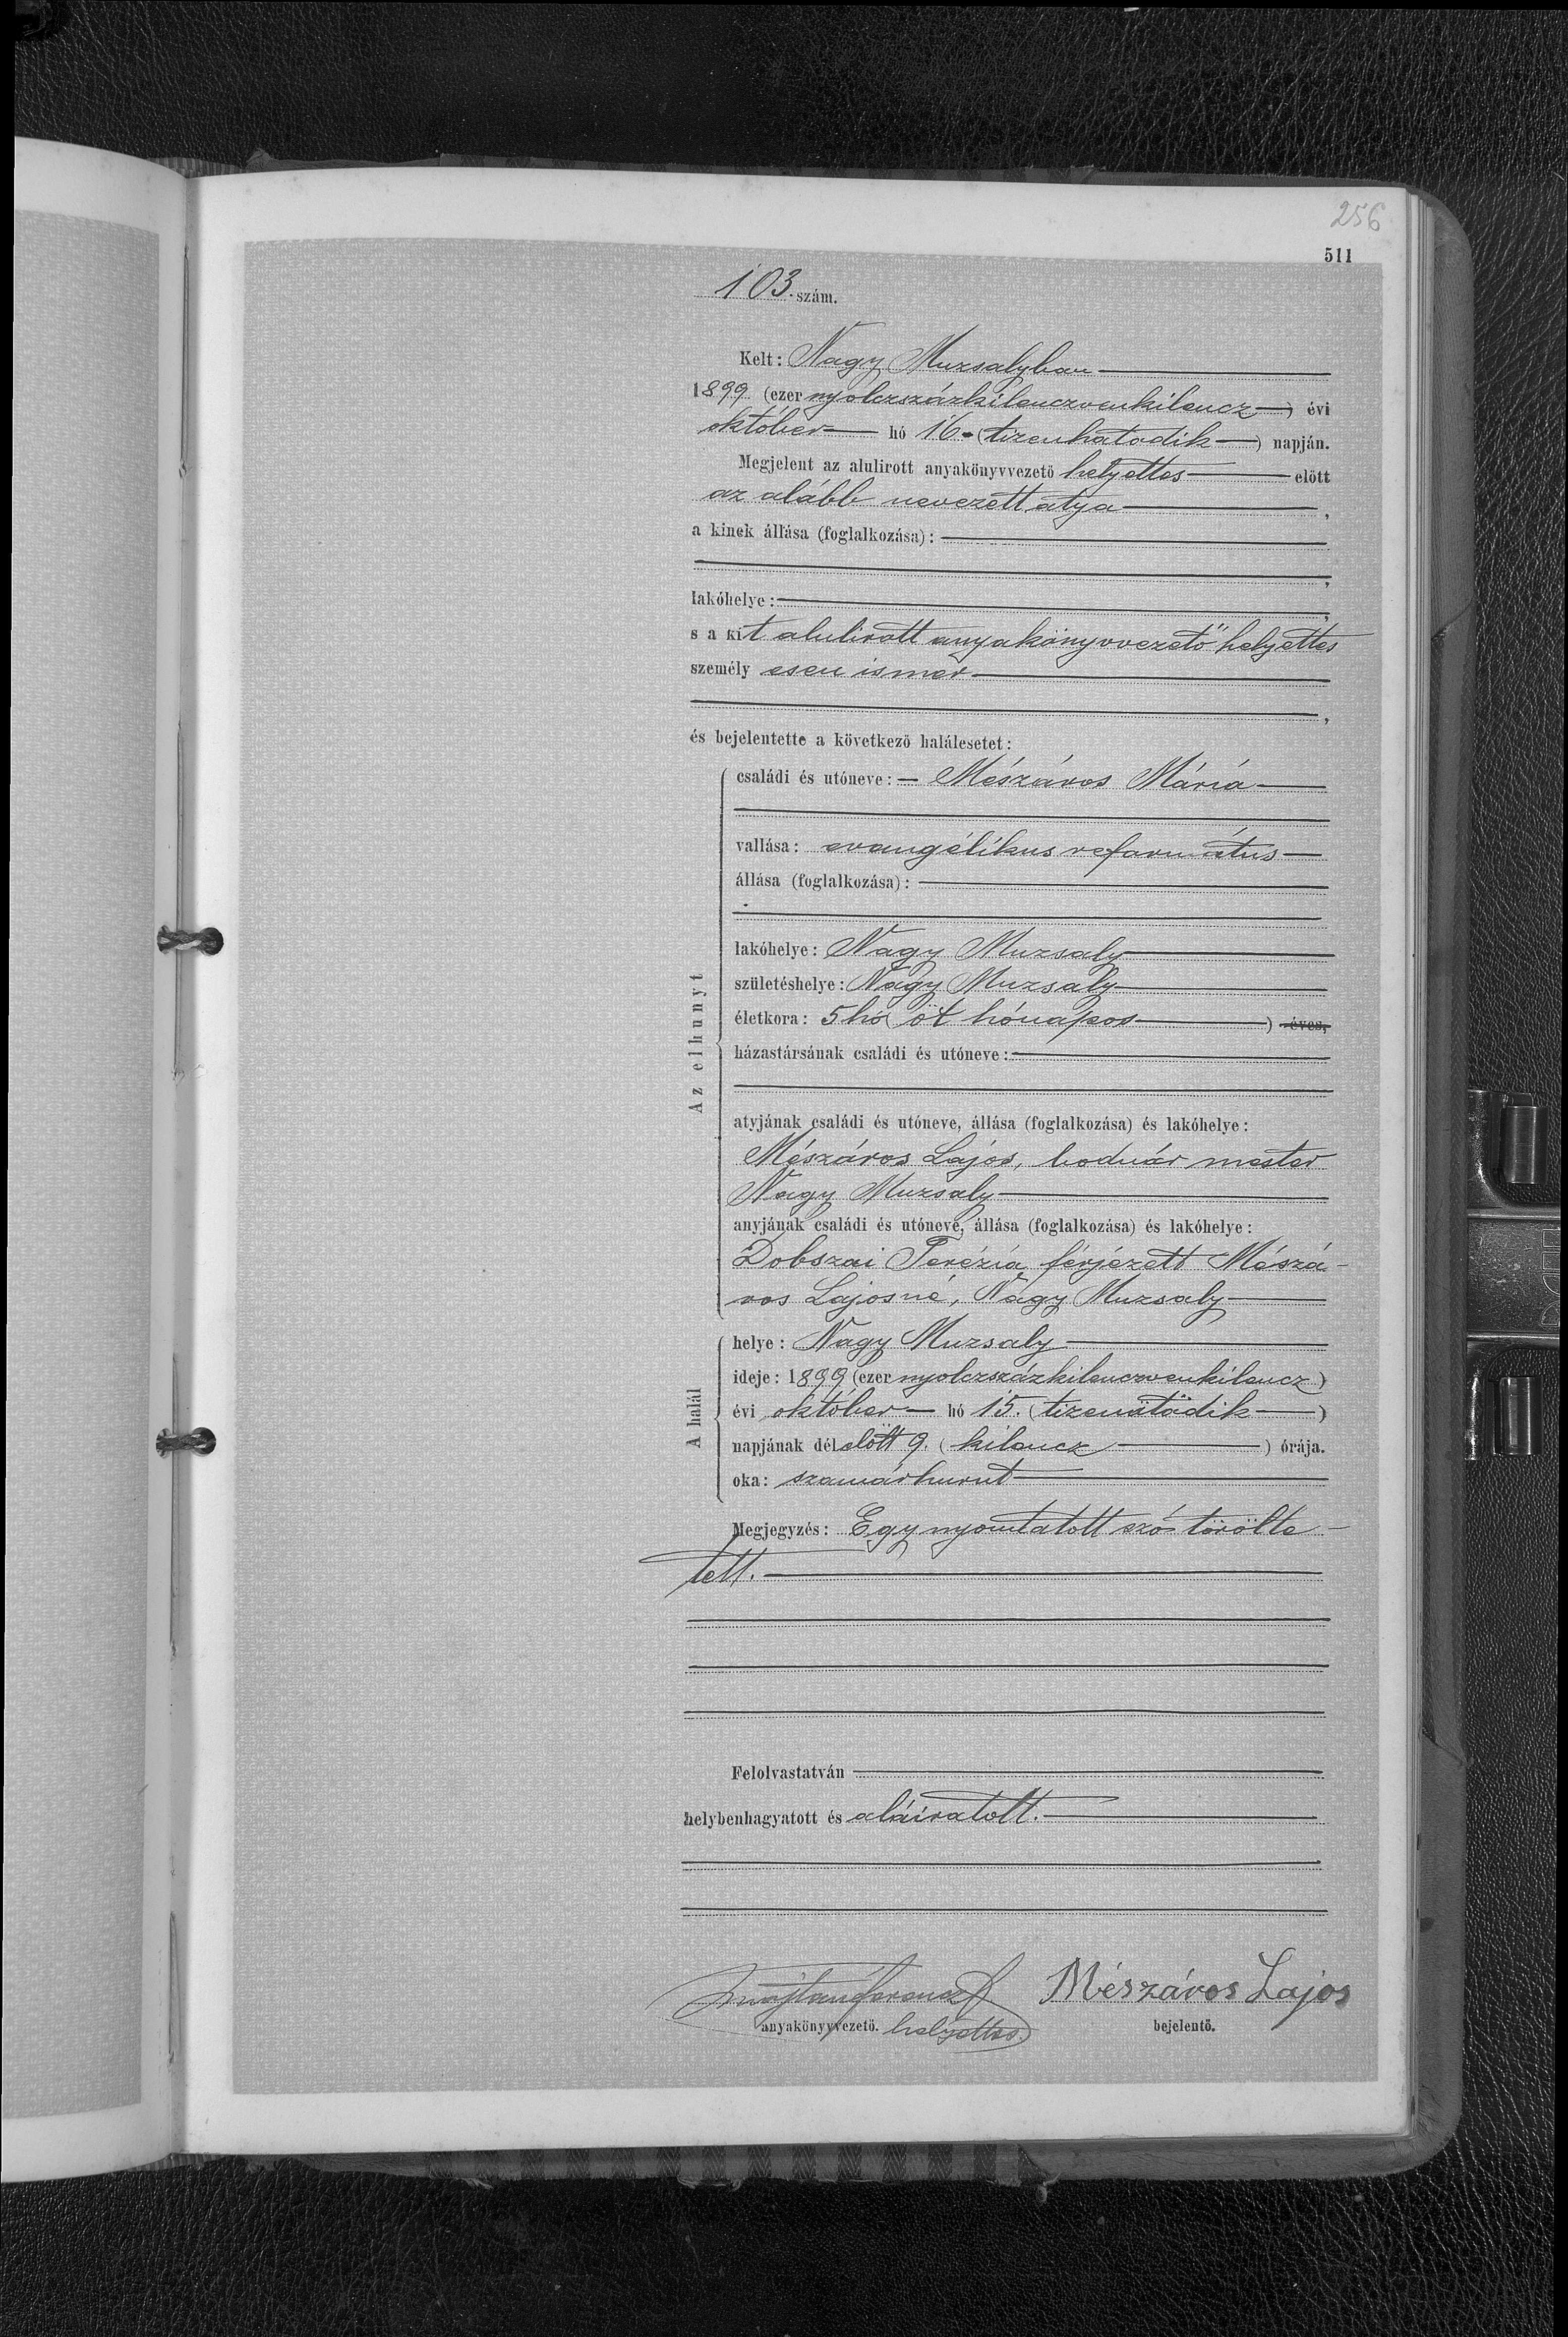 256
511
103. szám.
Kelt: Nagy Muzsalyban
1899 (ezer nyolczszázkilenczvenkilencz) évi
október hó 16. (tizenhatodik) napján.
Megjelent az alulirott anyakönyvvezető helyettes előtt
az alább nevezett atya,
a kinek állása (foglalkozása):
lakóhelye:
s a kit alulirott anyakönyvvezető helyettes
személyesen ismer
és bejelentette a következő halálesetet:
Az elhunyt
családi és utóneve: Mészáros Mária
vallása: evangélikus református
állása (foglalkozása):
lakóhelye: Nagy Muzsaly
születéshelye: Nagy Muzsaly
életkora: 5 hó (öt hónapos) éves,
házastársának családi és utóneve:
atyjának családi és utóneve, állása (foglalkozása) és lakóhelye:
Mészáros Lajos, bodnár mester
Nagy Muzsaly
anyjának családi és utóneve, állása (foglalkozása) és lakóhelye:
Dobszai Terézia férjezett Mészá-
ros Lajosné, Nagy Muzsaly
A halál
helye: Nagy Muzsaly
ideje: 1899 (ezer nyolczszázkilenczvenkilencz)
évi október hó 15. (tizenötödik)
napjának délelőtt 9. (kilencz) órája.
oka: szamárhurut
Megjegyzés: Egy nyomtatott szó törölte-
tett.
Felolvastatván
helybenhagyatott és aláiratott.
Mészáros Lajos
anyakönyvvezető. helyettes.
bejelentő.